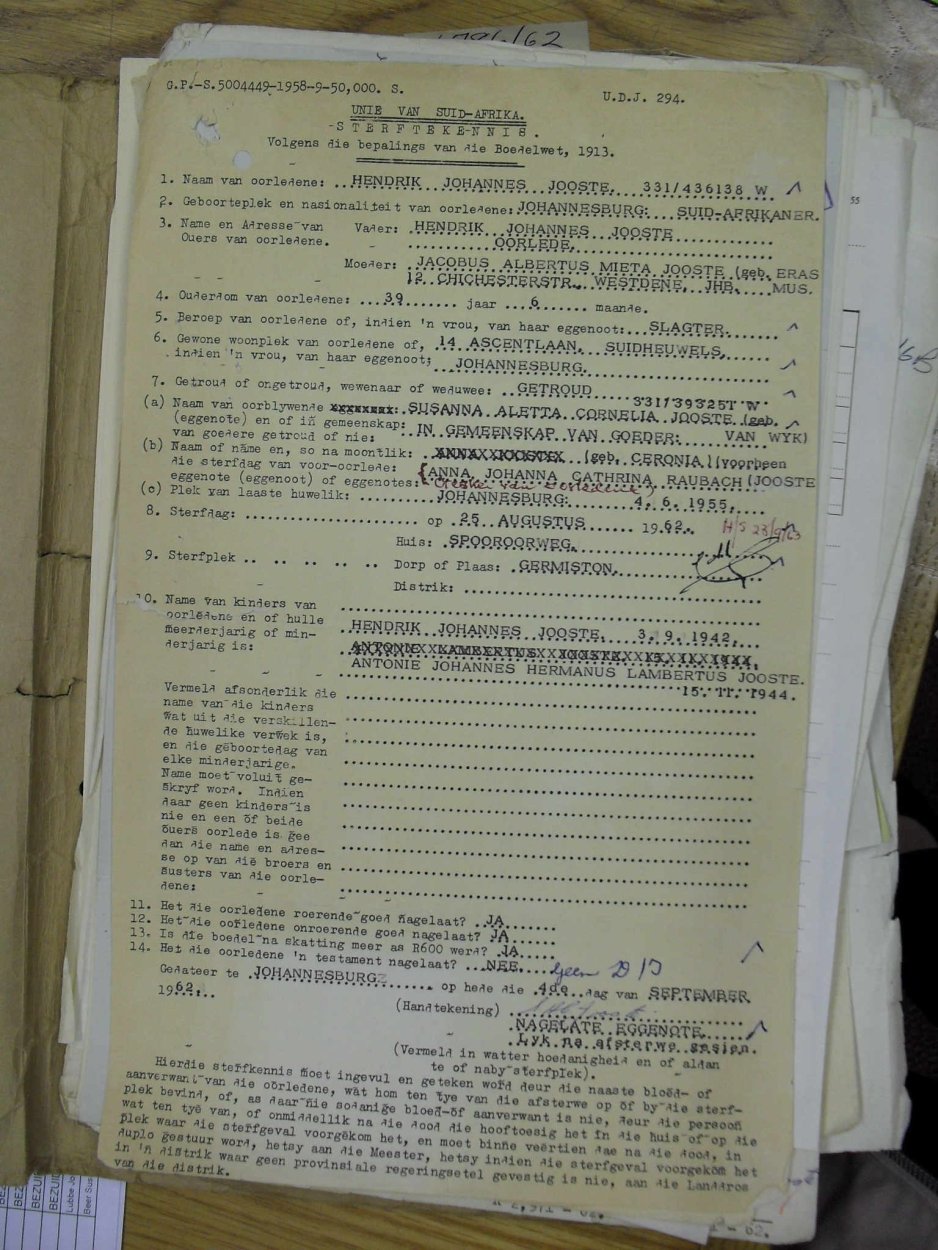 1786/62
G.P.-S.5004449-1958-9-50,000. S.
U.D.J. 294.
UNIE VAN SUID-AFRIKA.
-STERFTEKENNIS.
Volgens die bepalings van die Boedelwet, 1913.
1. Naam van oorledene: ..HENDRIK JOHANNES JOOSTE, 331/436138 W.
2. Geboorteplek en nasionaliteit van oorledene: JOHANNESBURG: SUID-AFRIKANER.
3. Name en Adresse van Vader: HENDRIK JOHANNES JOOSTE
Ouers van oorledene. OORLEDE,
Moeder: JACOBUS ALBERTUS MIETA JOOSTE (geb. ERAS
12 CHICHESTERSTR., WESTDENE, JHB. MUS.
4. Ouderdom van oorledene: ...39....... jaar ..6...... maande.
5. Beroep van oorledene of, indien 'n vrou, van haar eggenoot: SLAGTER.
6. Gewone woonplek van oorledene of, 14 ASCENTLAAN, SUIDHEUWELS,
indien 'n vrou, van haar eggenoot; JOHANNESBURG.
7. Getroud of ongetroud, wewenaar of weduwee: ..GETROUD
331/393251 W
(a) Naam van oorblywende xxxxxxxx: SUSANNA ALETTA CORNELIA JOOSTE (geb.
(eggenote) en of in gemeenskap: IN GEMEENSKAP VAN GOEDER: VAN WYK)
van goedere getroud of nie:
(b) Naam of name en, so na moontlik: (geb. CERONIA) (voorheen
die sterfdag van voor-oorlede: ANNA JOHANNA CATHRINA RAUBACH (JOOSTE
eggenote (eggenoot) of eggenotes: van oorledene)
(c) Plek van laaste huwelik: JOHANNESBURG: 4. 6. 1955.
8. Sterfdag: ........ op 25 AUGUSTUS 1962. H/S 23/9/63
Huis: SPOOROORWEG.
9. Sterfplek .. .. .. .. .. Dorp of Plaas: GERMISTON.
Distrik:
10. Name van kinders van
oorledene en of hulle
meerderjarig of min- HENDRIK JOHANNES JOOSTE, 3. 9. 1942.
derjarig is:
ANTONIE JOHANNES HERMANUS LAMBERTUS JOOSTE.
15. 11. 1944.
Vermeld afsonderlik die
name van die kinders
wat uit die verskillen-
de huwelike verwek is,
en die geboortedag van
elke minderjarige.
Name moet voluit ge-
skryf word. Indien
daar geen kinders is
nie en een of beide
ouers oorlede is gee
dan die name en adres-
se op van die broers en
susters van die oorle-
dene:
11. Het die oorledene roerende goed nagelaat? .JA......
12. Het die oorledene onroerende goed nagelaat? JA......
13. Is die boedel na skatting meer as R600 werd? .JA.....
14. Het die oorledene 'n testament nagelaat? ..NEE.
Gedateer te .JOHANNESBURG....... op hede die .4de..dag van SEPTEMBER
1962...
(Handtekening)
NAGELATE EGGENOTE.
Lyk na afsterwe gesien.
(Vermeld in watter hoedanigheid en of aldan
te of naby sterfplek).
Hierdie sterfkennis moet ingevul en geteken word deur die naaste bloed- of
aanverwant van die oorledene, wat hom ten tye van die afsterwe op of by die sterf-
plek bevind, of, as daar nie sodanige bloed-of aanverwant is nie, deur die persoon
wat ten tye van, of onmiddellik na die dood die hooftoesig het in die huis of op die
plek waar die sterfgeval voorgekom het, en moet binne veertien dae na die dood, in
duplo gestuur word, hetsy aan die Meester, hetsy indien die sterfgeval voorgekom het
in 'n distrik waar geen provinsiale regeringsetel gevestig is nie, aan die Landdros
van die distrik.
55
BEZUI
BEZUID
BEZUID
Lubbe Jo
Beer Sus